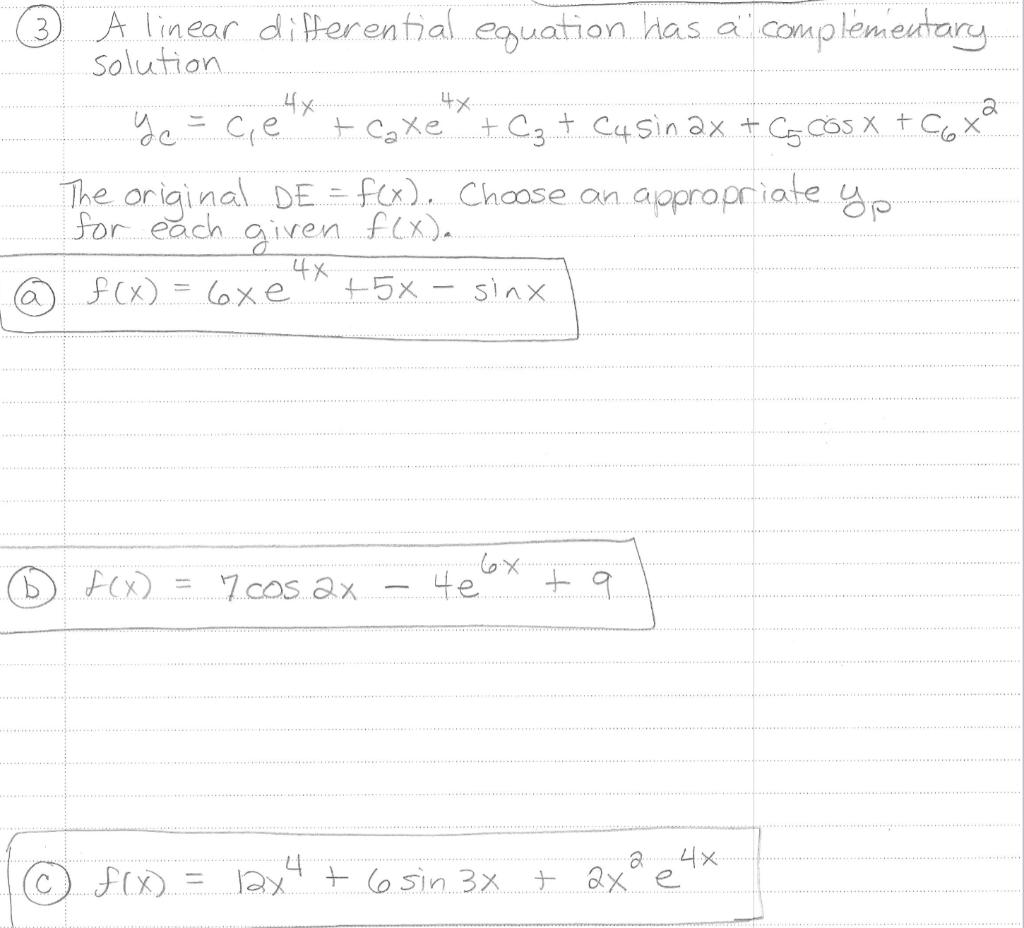 ③ A linear differential equation has a complementary
solution
y_c = c₁e^{4x} + c₂xe^{4x} + c₃ + c₄ sin 2x + c₅ cos x + c₆x²
The original DE = f(x). Choose an appropriate y_p
for each given f(x).
ⓐ f(x) = 6xe^{4x} + 5x - sin x
ⓑ f(x) = 7 cos 2x - 4e^{6x} + 9
ⓒ f(x) = 12x⁴ + 6 sin 3x + 2x² e^{4x}